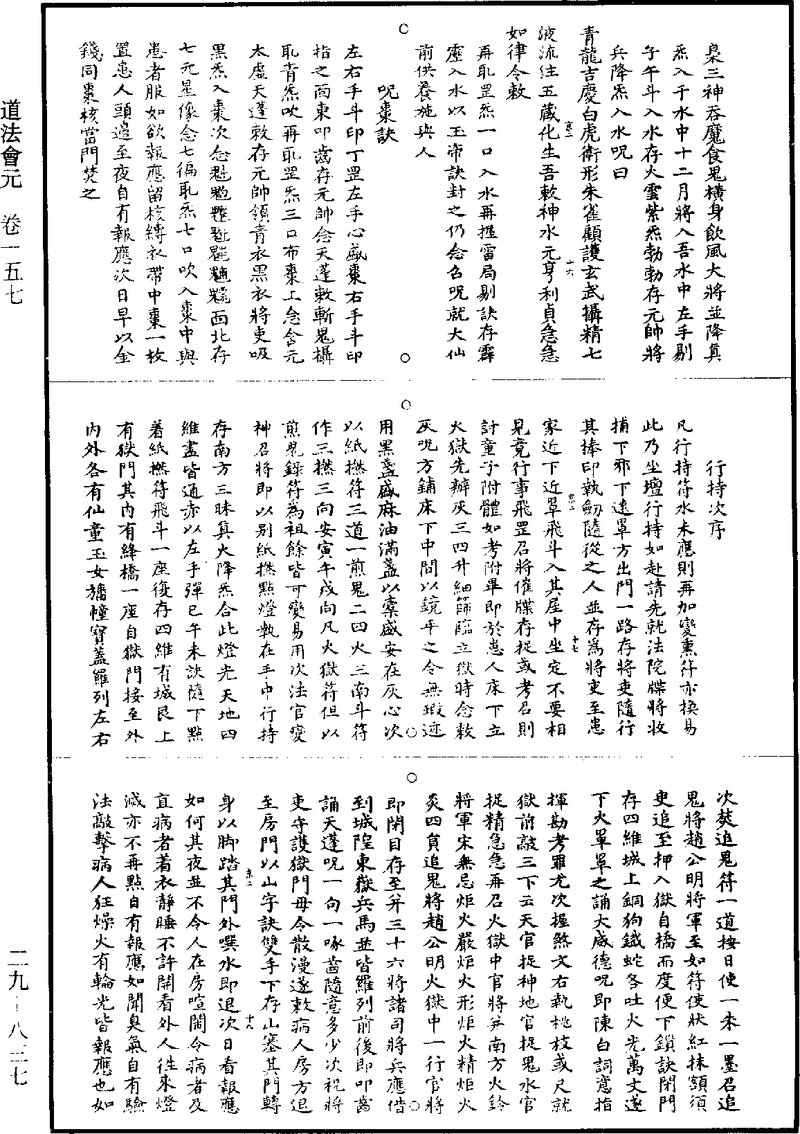 道法會元 卷一五七
二九—八二七
梟三神吞魔食鬼橫身飲風大將並降真
炁入于水中十二月將入吾水中左手剔
子午斗入水存火雲紫炁勃勃存元帥將
兵降炁入水呪曰
青龍吉慶白虎衛形朱雀顧護玄武攝精七
液流注五藏化生吾敕神水元亨利貞急急
如律令敕
再取罡炁一口入水再握雷局剔訣存霹
靂入水以玉帝訣封之仍念名呪就大仙
前供養施與人
呪棗訣
左右手斗印丁罡左手心盛棗右手斗印
指之面東叩齒存元帥念天蓬敕斬鬼攝
取青炁吹再取罡炁三口布棗上念含元
太虛天蓬敕存元帥領青衣黑衣將吏吸
黑炁入棗次念魁𩲃䰢魓𩳐魒魑西北存
七元星像念七徧取炁七口吹入棗中與
患者服如欲報應留核縛衣帶中棗一枚
置患人頭邊至夜自有報應次日早以金
錢同棗核當門焚之
行持次序
凡行持符水未應則再加變熏符亦換易
此乃坐壇行持如赴請先就法院牒將收
捕下邪下遠罩方出門一路存將吏隨行
其捧印執劒隨從之人並存為將吏至患
家近下近罩飛斗入其屋中坐定不要相
見竟行事飛罡召將催牒存捉或考召則
討童子附體如考附畢即於患人床下立
火獄先辦灰三四升細篩臨立獄時念敕
灰呪方鋪床下中間以鏡平之令無瑕迹
用黑盞盛麻油滿盞以窠盛安在灰心次
以紙撚符三道一煎鬼二四火三南斗符
作三撚三向安寅午戌向凡火獄符但以
煎鬼錄符為祖餘皆可變易用次法官變
神召將即以別紙撚點燈執在手中行持
存南方三昧真火降炁合此燈光天地四
維畫皆通赤以左手彈巳午未訣隨下點
着紙撚符飛斗一座復存四維有城艮上
有獄門其內有絳橋一座自獄門接至外
內外各有仙童玉女旛幢寶蓋羅列左右
次焚追鬼符一道按日使一朱一墨召追
鬼將趙公明將軍至如符使狀紅抹額須
㬰追至押入獄自橋而度便下鎖訣閉門
存四維城上銅狗鐵蛇各吐火光萬丈遂
下火罩罩之誦大威德呪即陳白詞意指
揮勘考罪尤次握煞文右執桃枝或尺就
獄前敲三下云天官捉神地官捉鬼水官
捉精急急再召火獄中官將并南方火鈴
將軍宋無忌炬火嚴炬火形炬火精炬火
炎四負追鬼將趙公明火獄中一行官將
即閉目存至并三十六將諸司將兵應借
到城隍東嶽兵馬並皆羅列前後即叩齒
誦天蓬呪一句一啄齒隨意多少次祝將
吏守護獄門毋令散漫遂敕病人房方退
至房門以山字訣雙手下存山塞其門轉
身以脚踏其門外噀水即退次日看報應
如何其夜並不令人在房喧鬧令病者及
宜病者着衣靜睡不許鬧看外人徃來燈
滅亦不再點自有報應如聞臭氣自有驗
法敲擊病人狂燥火有輪光皆報應也如